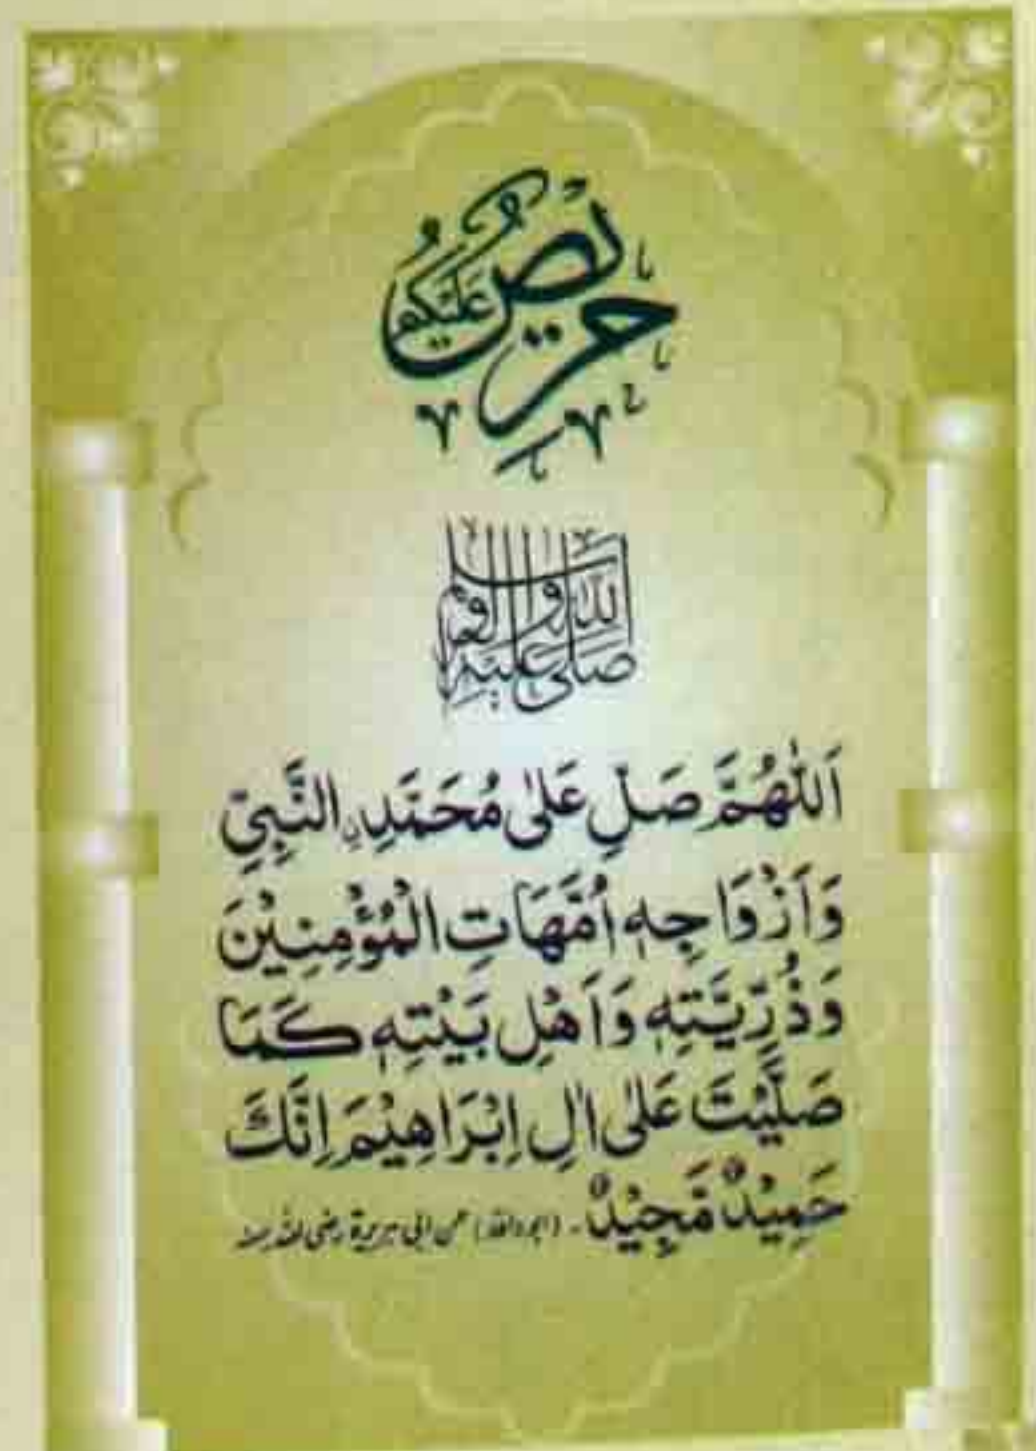 حَرِيْصٌ عَلَيْكُمْ
صلى الله عليه واله وسلم
اَللّٰهُمَّ صَلِّ عَلٰى مُحَمَّدِ ۣالنَّبِيِّ
وَاَزْوَاجِهٖ اُمَّهَاتِ الْمُؤْمِنِيْنَ
وَذُرِّيَّتِهٖ وَاَهْلِ بَيْتِهٖ كَمَا
صَلَّيْتَ عَلٰى اٰلِ اِبْرَاهِيْمَ اِنَّكَ
حَمِيْدٌ مَّجِيْدٌ۔ (ابوداؤد) عن ابی ہریرة رضی اللہ عنہ